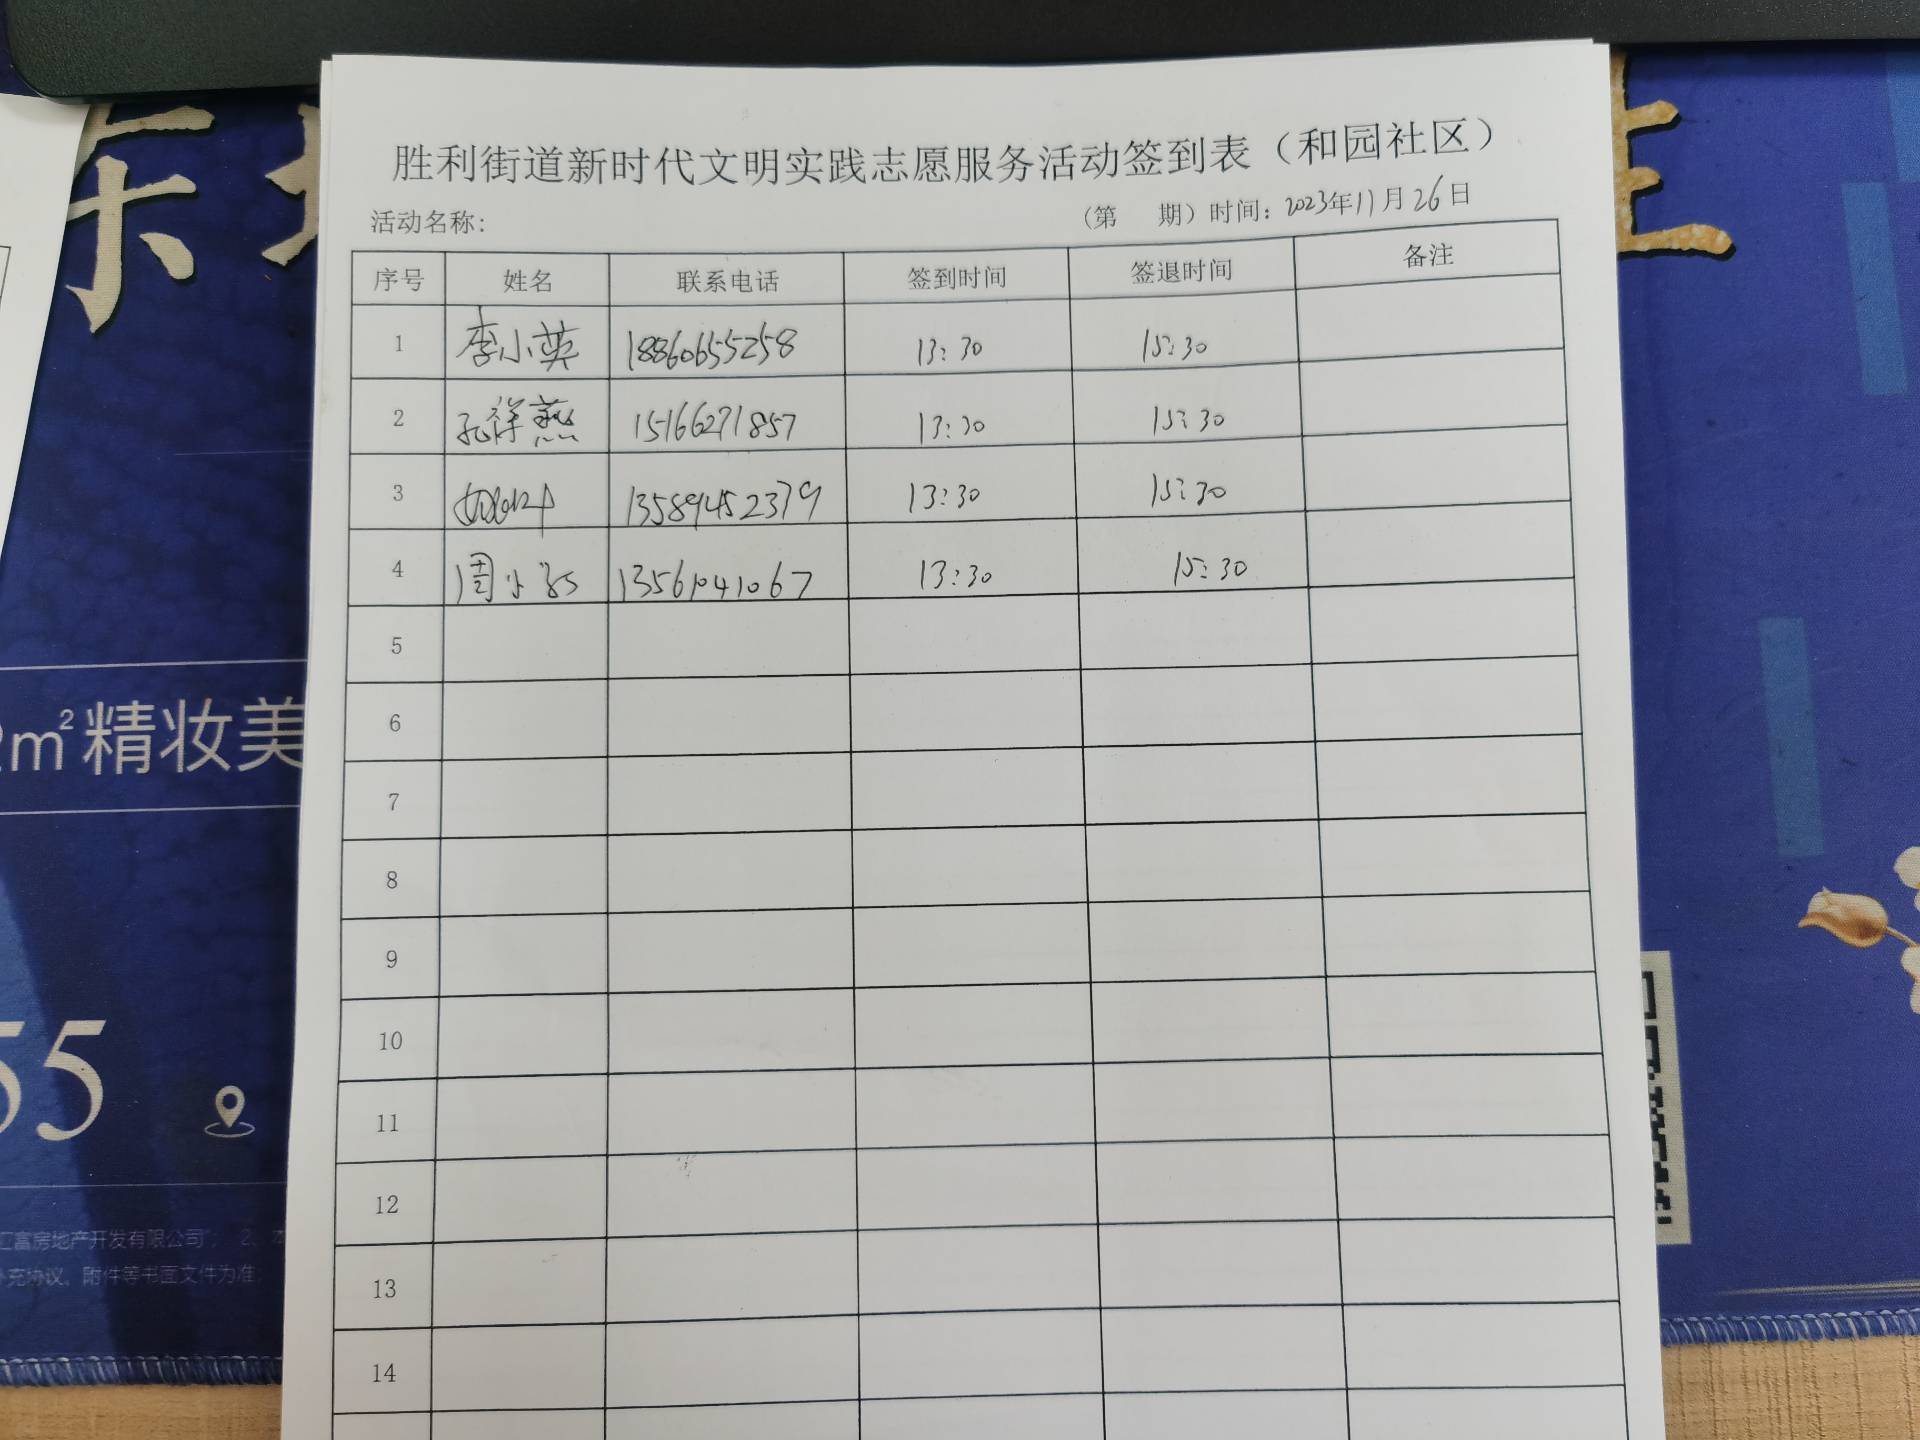 胜利街道新时代文明实践志愿服务活动签到表（和园社区）
活动名称： （第 期）时间：2023年11月26日
序号 姓名 联系电话 签到时间 签退时间 备注
1 李小英 18860655258 13:30 15:30
2 孔祥燕 15166271857 13:30 15:30
3 13589452379 13:30 15:30
4 周小 13561041067 13:30 15:30
5
6
7
8
9
10
11
12
13
14
m²精妆美
55
汇富房地产开发有限公司”； 2、本
补充协议、附件等书面文件为准。